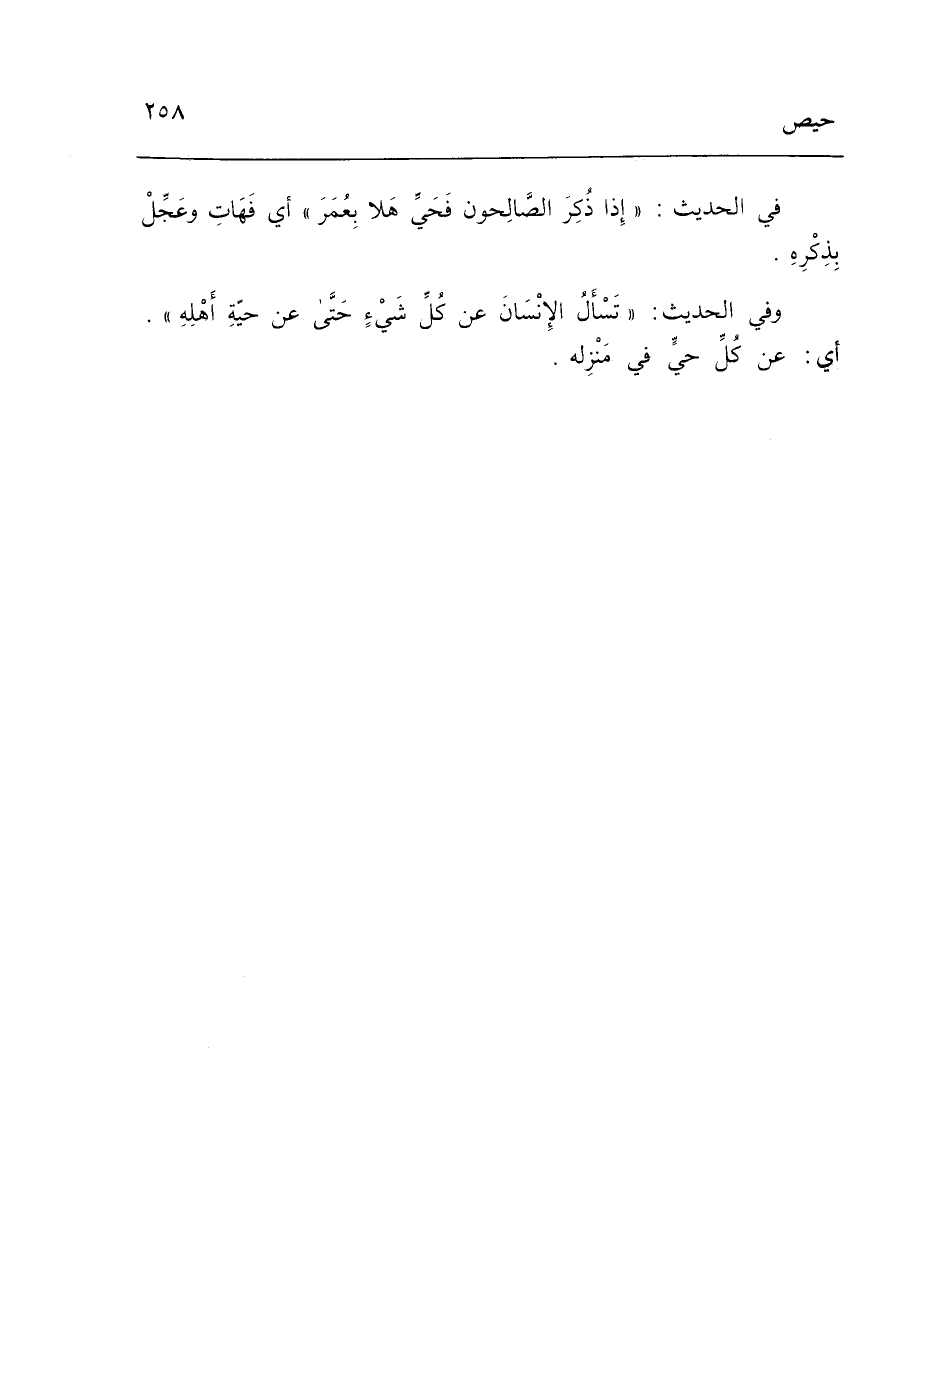 حيص ٢٥٨
في الحديث : « إِذا ذُكِرَ الصَّالِحون فَحَيِّ هَلا بِعُمَرَ » أي فَهَاتِ وعَجِّلْ
بِذِكْرِهِ .
وفي الحديث : « تَسْأَلُ الإِنْسَانَ عن كُلِّ شَيْءٍ حَتَّىٰ عن حيّةِ أَهْلِهِ » .
أي : عن كُلِّ حيٍّ في مَنْزِله .